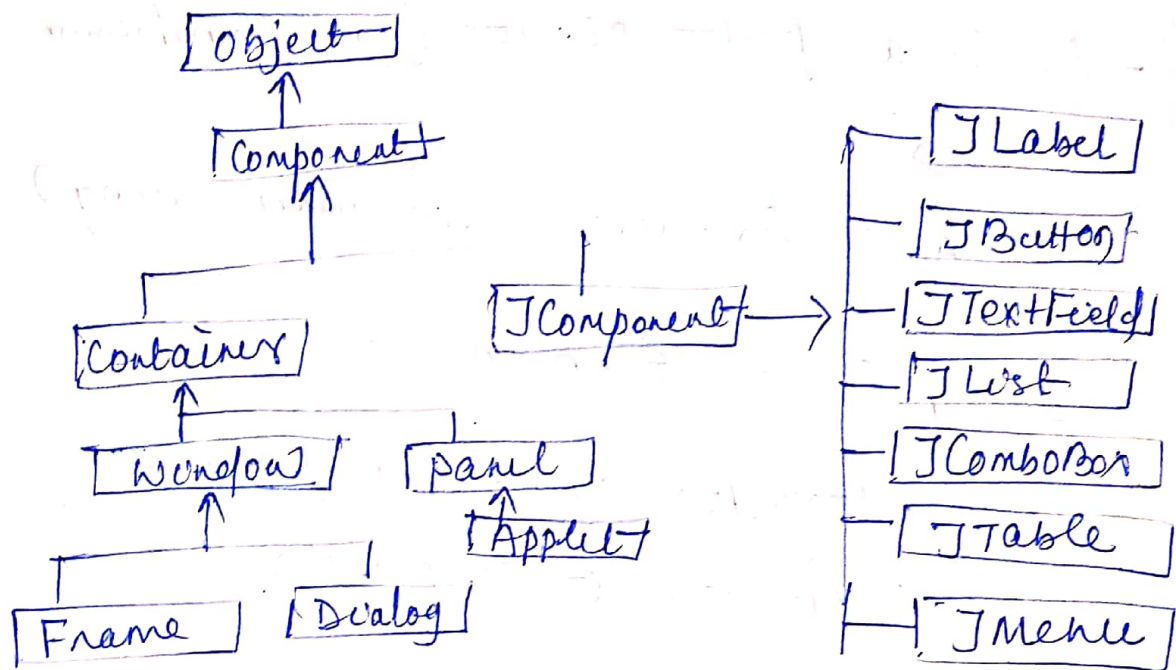 Object
Component
Container
JComponent
Window
Panel
Applet
Frame
Dialog
JLabel
JButton
JTextField
JList
JComboBox
JTable
JMenu